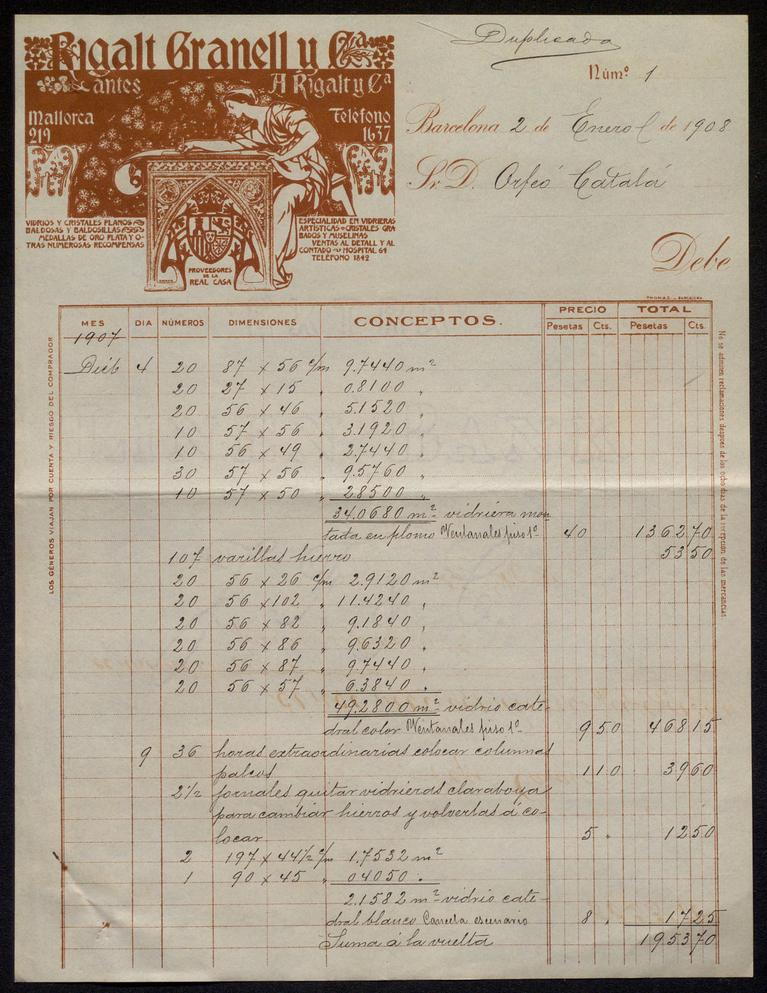 Rigalt Granell y Cía
Antes A Rigalt y Ca
Mallorca 219
Teléfono 1637
VIDRIOS Y CRISTALES PLANOS
BALDOSAS Y BALDOSILLAS
MEDALLAS DE ORO PLATA Y O-
TRAS NUMEROSAS RECOMPENSAS
PROVEEDORES
DE LA
REAL CASA
ESPECIALIDAD EN VIDRIERAS
ARTÍSTICAS-CRISTALES GRA
BADOS Y MUSELINAS
VENTAS AL DETALL Y AL
CONTADO HOSPITAL 64
TELÉFONO 1842
Duplicado
Núm.º 1
Barcelona 2 de Enero de 1908
Sr. D. Orfeó Catalá
Debe
THOMAS - BARCELONA
MES DIA NÚMEROS DIMENSIONES CONCEPTOS. PRECIO TOTAL
Pesetas Cts. Pesetas Cts.
1907
Dicb 4 20 87 x 56 c/m 9.7440 m²
20 27 x 15 " 0.8100 "
20 56 x 46 " 5.1520 "
10 57 x 56 " 3.1920 "
10 56 x 49 " 2.7440 "
30 57 x 56 " 9.5760 "
10 57 x 50 " 2.8500 "
34.0680 m² vidriera mon
tada en plomo Ventanales piso 1º 40 1362 70
107 varillas hierro 53 50
20 56 x 26 c/m 2.9120 m²
20 56 x 102 " 11.4240 "
20 56 x 82 " 9.1840 "
20 56 x 86 " 9.6320 "
20 56 x 87 " 9.7440 "
20 56 x 57 " 6.3840 "
49.2800 m² vidrio cate-
dral color Ventanales piso 1º 9 50 468 15
9 36 horas extraordinarias colocar columnas
palcos 1 10 39 60
2 1/2 jornales quitar vidrieras claraboya
para cambiar hierros y volverlas á co-
locar 5 " 12 50
2 197 x 44 1/2 c/m 1.7532 m²
1 90 x 45 " 0.4050 "
2.1582 m² vidrio cate-
dral blanco Cancela escenario 8 " 17 25
Suma á la vuelta 1953 70
LOS GÉNEROS VIAJAN POR CUENTA Y RIESGO DEL COMPRADOR
No se admiten reclamaciones después de los ocho días de la recepción de las mercancías